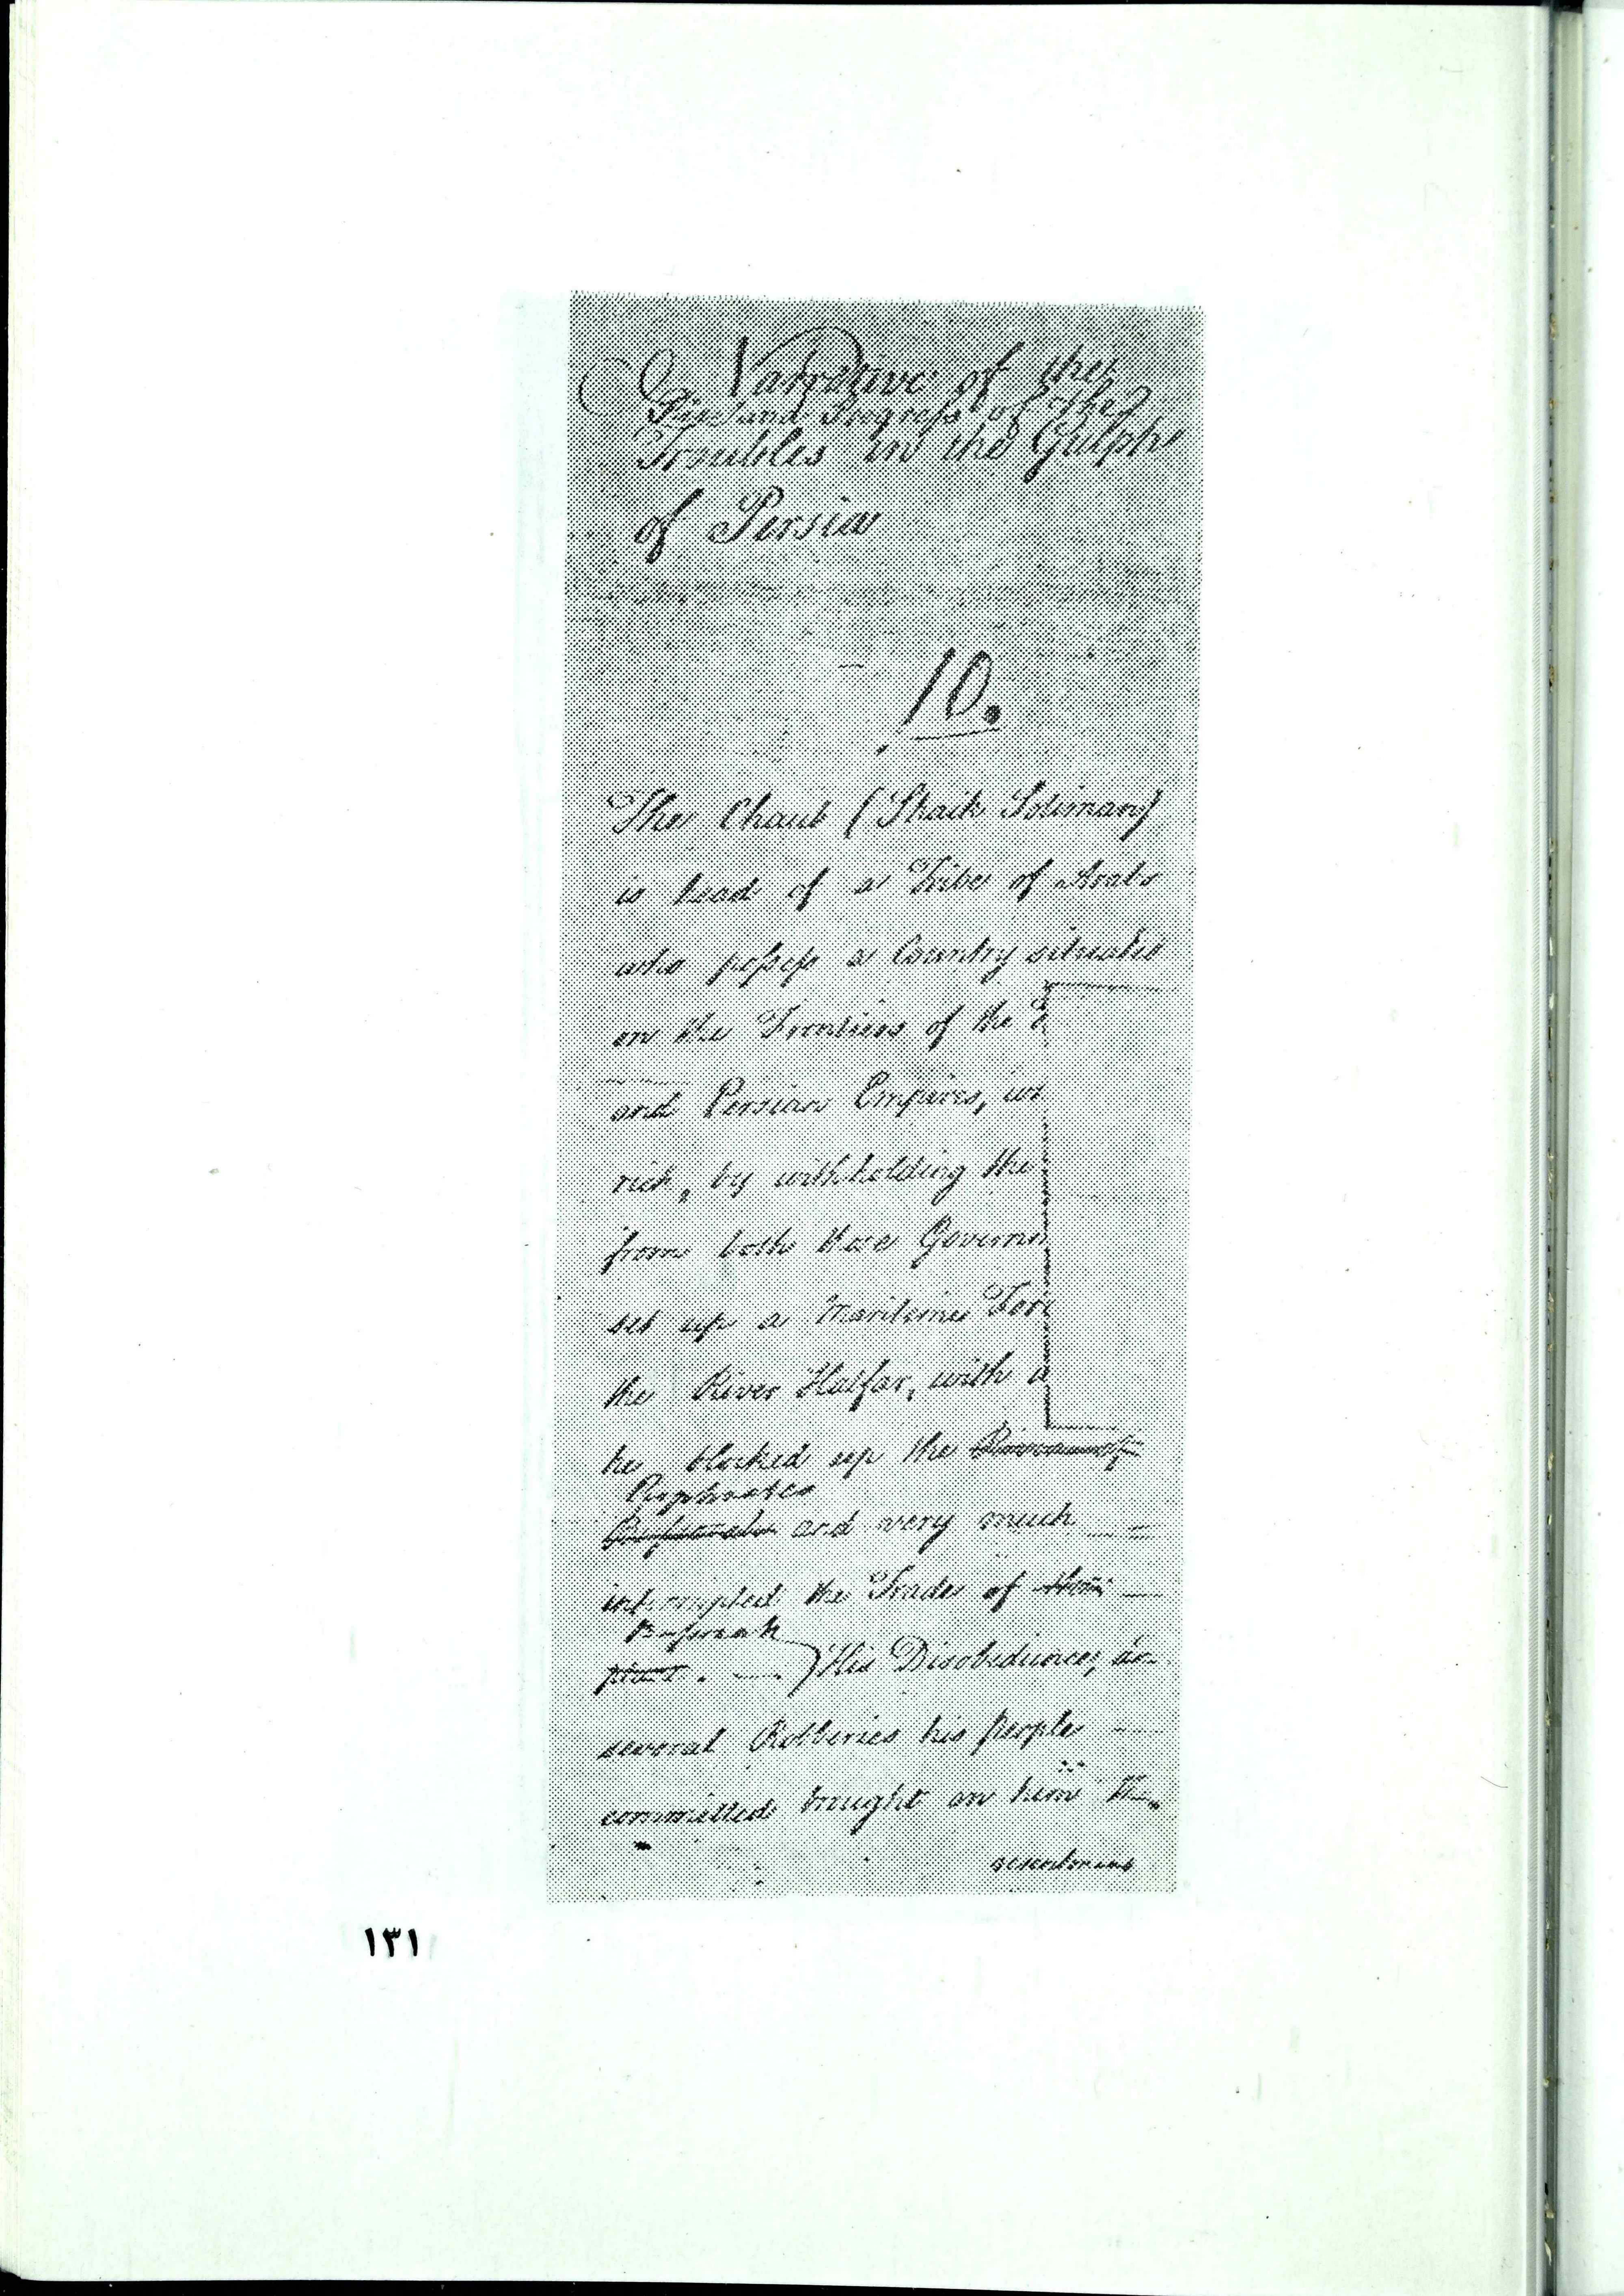 A Narrative of the
Rise and Progress of the
Troubles in the Gulph
of Persia
10.
The Chaub (Shaik Soliman)
is head of a Tribe of Arabs
who possess a Country situated
on the Frontiers of the
and Persian Empires,
rich, by withholding the
from both these Governm
set up a Maritime Forc
the River Haffar, with a
he blocked up the
Euphrates
Bussorah and very much
interrupted the Trade of
Bussorah
place. His Disobedience,
several Robberies his people
committed brought on him
resentment
١٣١